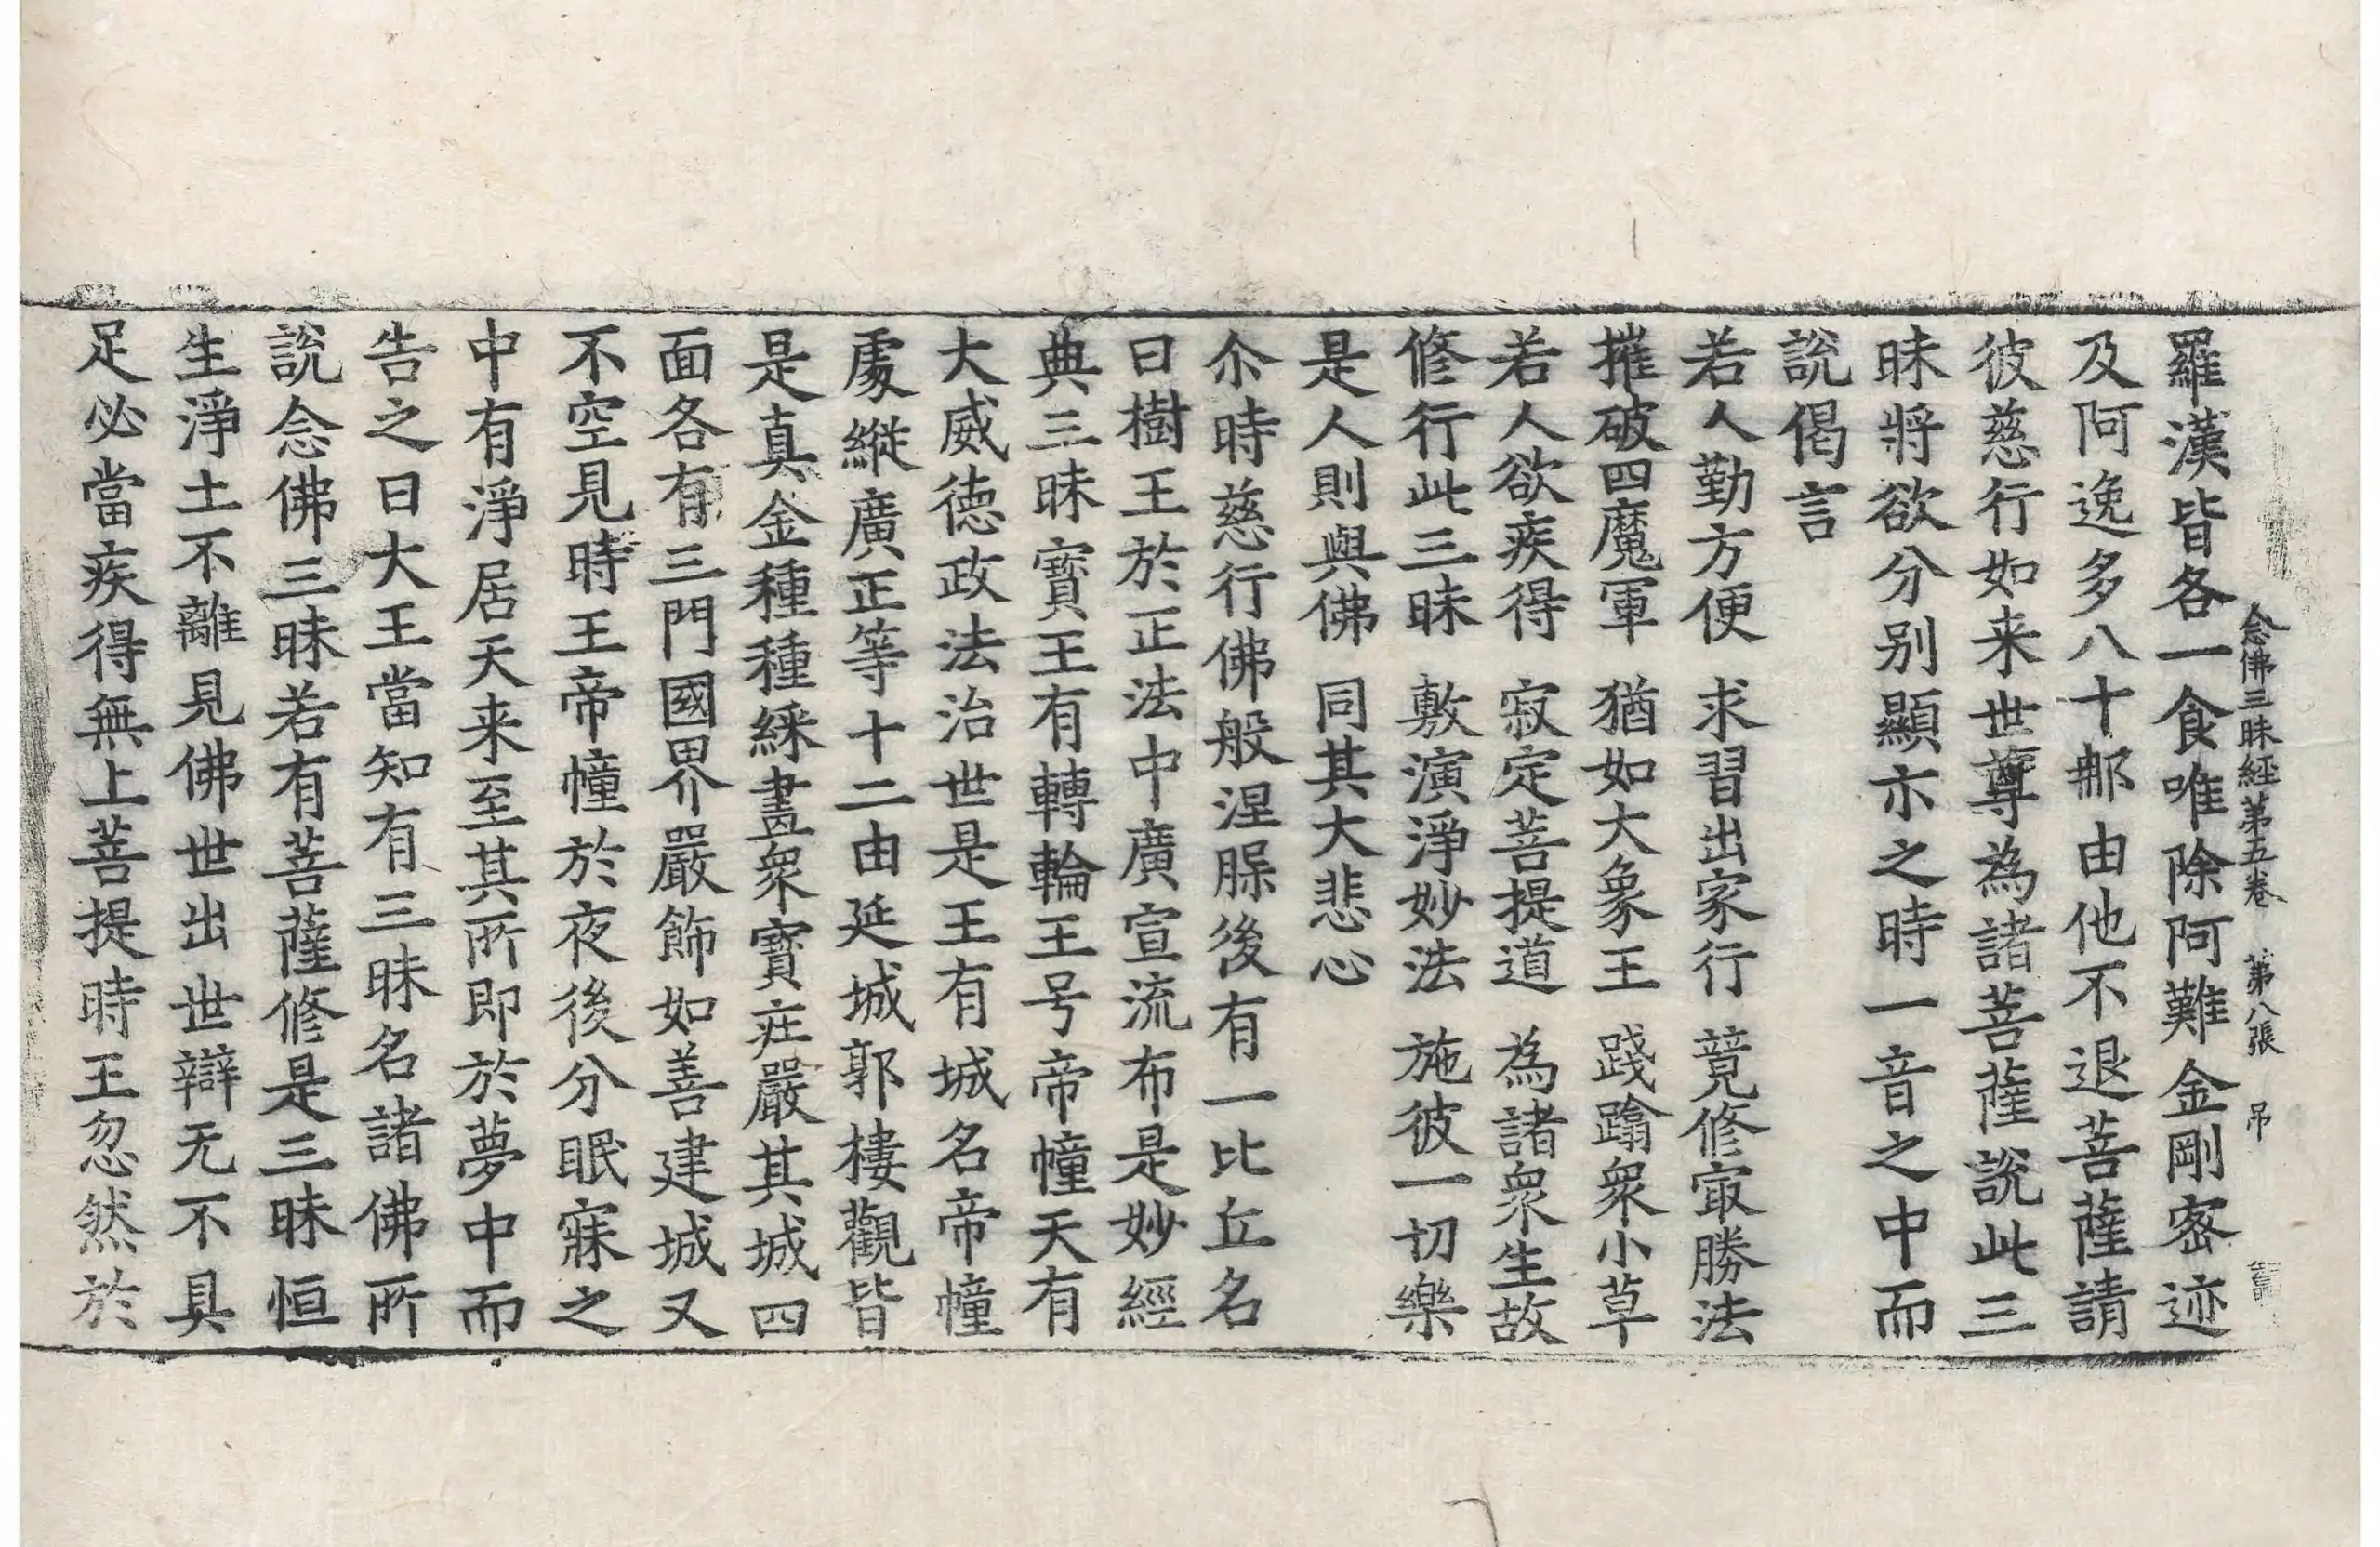 念佛三昧經第五卷　第八張　吊
羅漢皆各一食唯除阿難金剛宻迹
及阿逸多八十那由他不退菩薩請
彼慈行如来世尊為諸菩薩說此三
昧將欲分别顯示之時一音之中而
說偈言
若人勤方便　求習出家行　竟修㝡勝法
摧破四魔軍　猶如大象王　踐蹹衆小草
若人欲疾得　寂定菩提道　為諸衆生故
修行此三昧　敷演淨妙法　施彼一切樂
是人則與佛　同其大悲心
尒時慈行佛般涅脲後有一比丘名
曰樹王於正法中廣宣流布是妙經
典三昧寳王有轉輪王号帝幢天有
大威德政法治世是王有城名帝幢
䖏縱廣正等十二由延城郭樓觀皆
是真金種種綵畫衆寳庄嚴其城四
面各有三門國界嚴飾如善建城又
不空見時王帝幢於夜後分眠寐之
中有淨居天来至其所即於夢中而
告之曰大王當知有三昧名諸佛所
說念佛三昧若有菩薩修是三昧恒
生淨土不離見佛世出世辯无不具
足必當疾得無上菩提時王忽然於